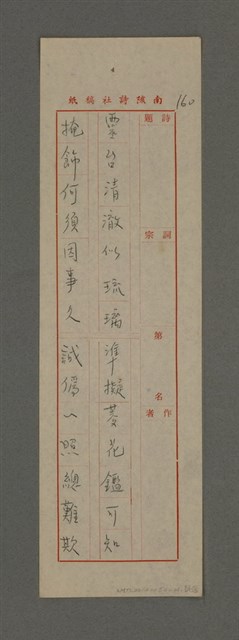 南陔詩社稿紙
160
詩題
詞宗
第 名
作者
台清澈似琉璃準擬菱花鑑可知
掩飾何須因事久誠偽一照總難欺